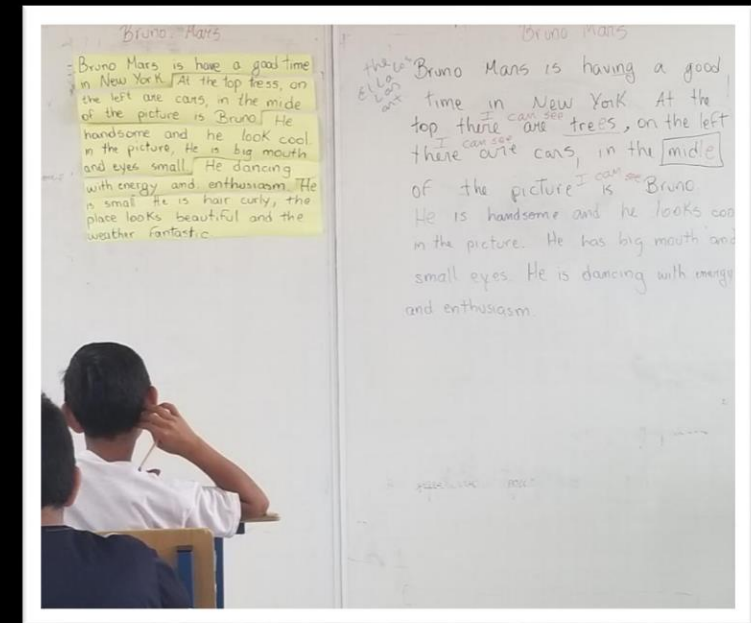 Bruno Mars
Bruno Mars is have a good time
in New York. At the top tress, on
the left are cars, in the mide
of the picture is Bruno. He
handsome and he look cool
in the picture, He is big mouth
and eyes small. He dancing
with energy and enthusiasm. He
is small He is hair curly, the
place looks beautiful and the
weather fantastic.
Bruno mars
the
Bruno Mars is having a good
time in New York. At the
I can see
top there are trees, on the left
I can see
there are cars, in the midle
I can see
of the picture is Bruno
He is handsome and he looks coo
in the picture. He has big mouth and
small eyes. He is dancing with energy
and enthusiasm.